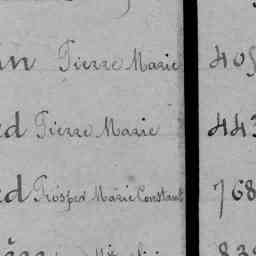 in Pierre Marie 405
ed Pierre Marie 443
ed Prosper Marie Constant 768